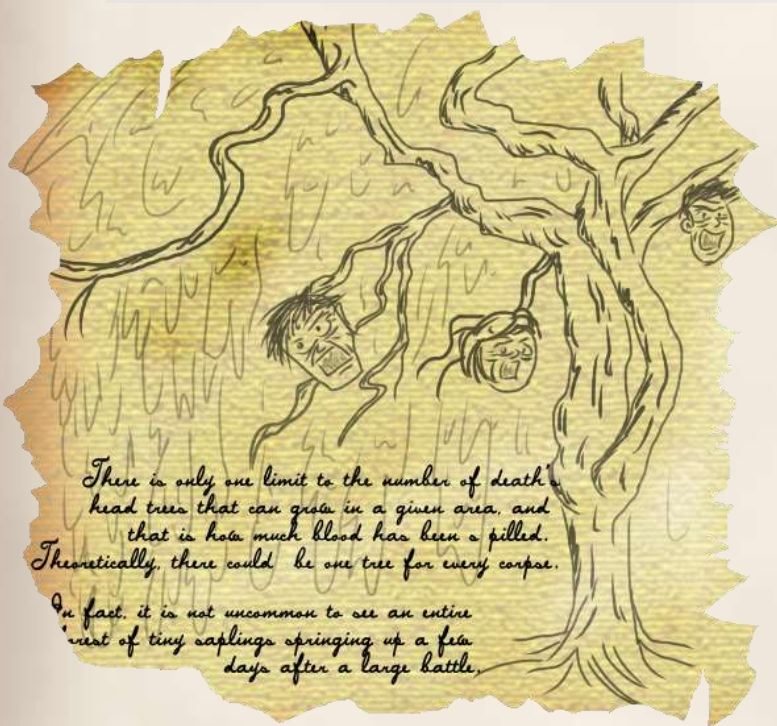 There is only one limit to the number of death's
head trees that can grow in a given area, and
that is how much blood has been s pilled.
Theoretically, there could be one tree for every corpse.
In fact, it is not uncommon to see an entire
of tiny saplings springing up a few
days after a large battle.